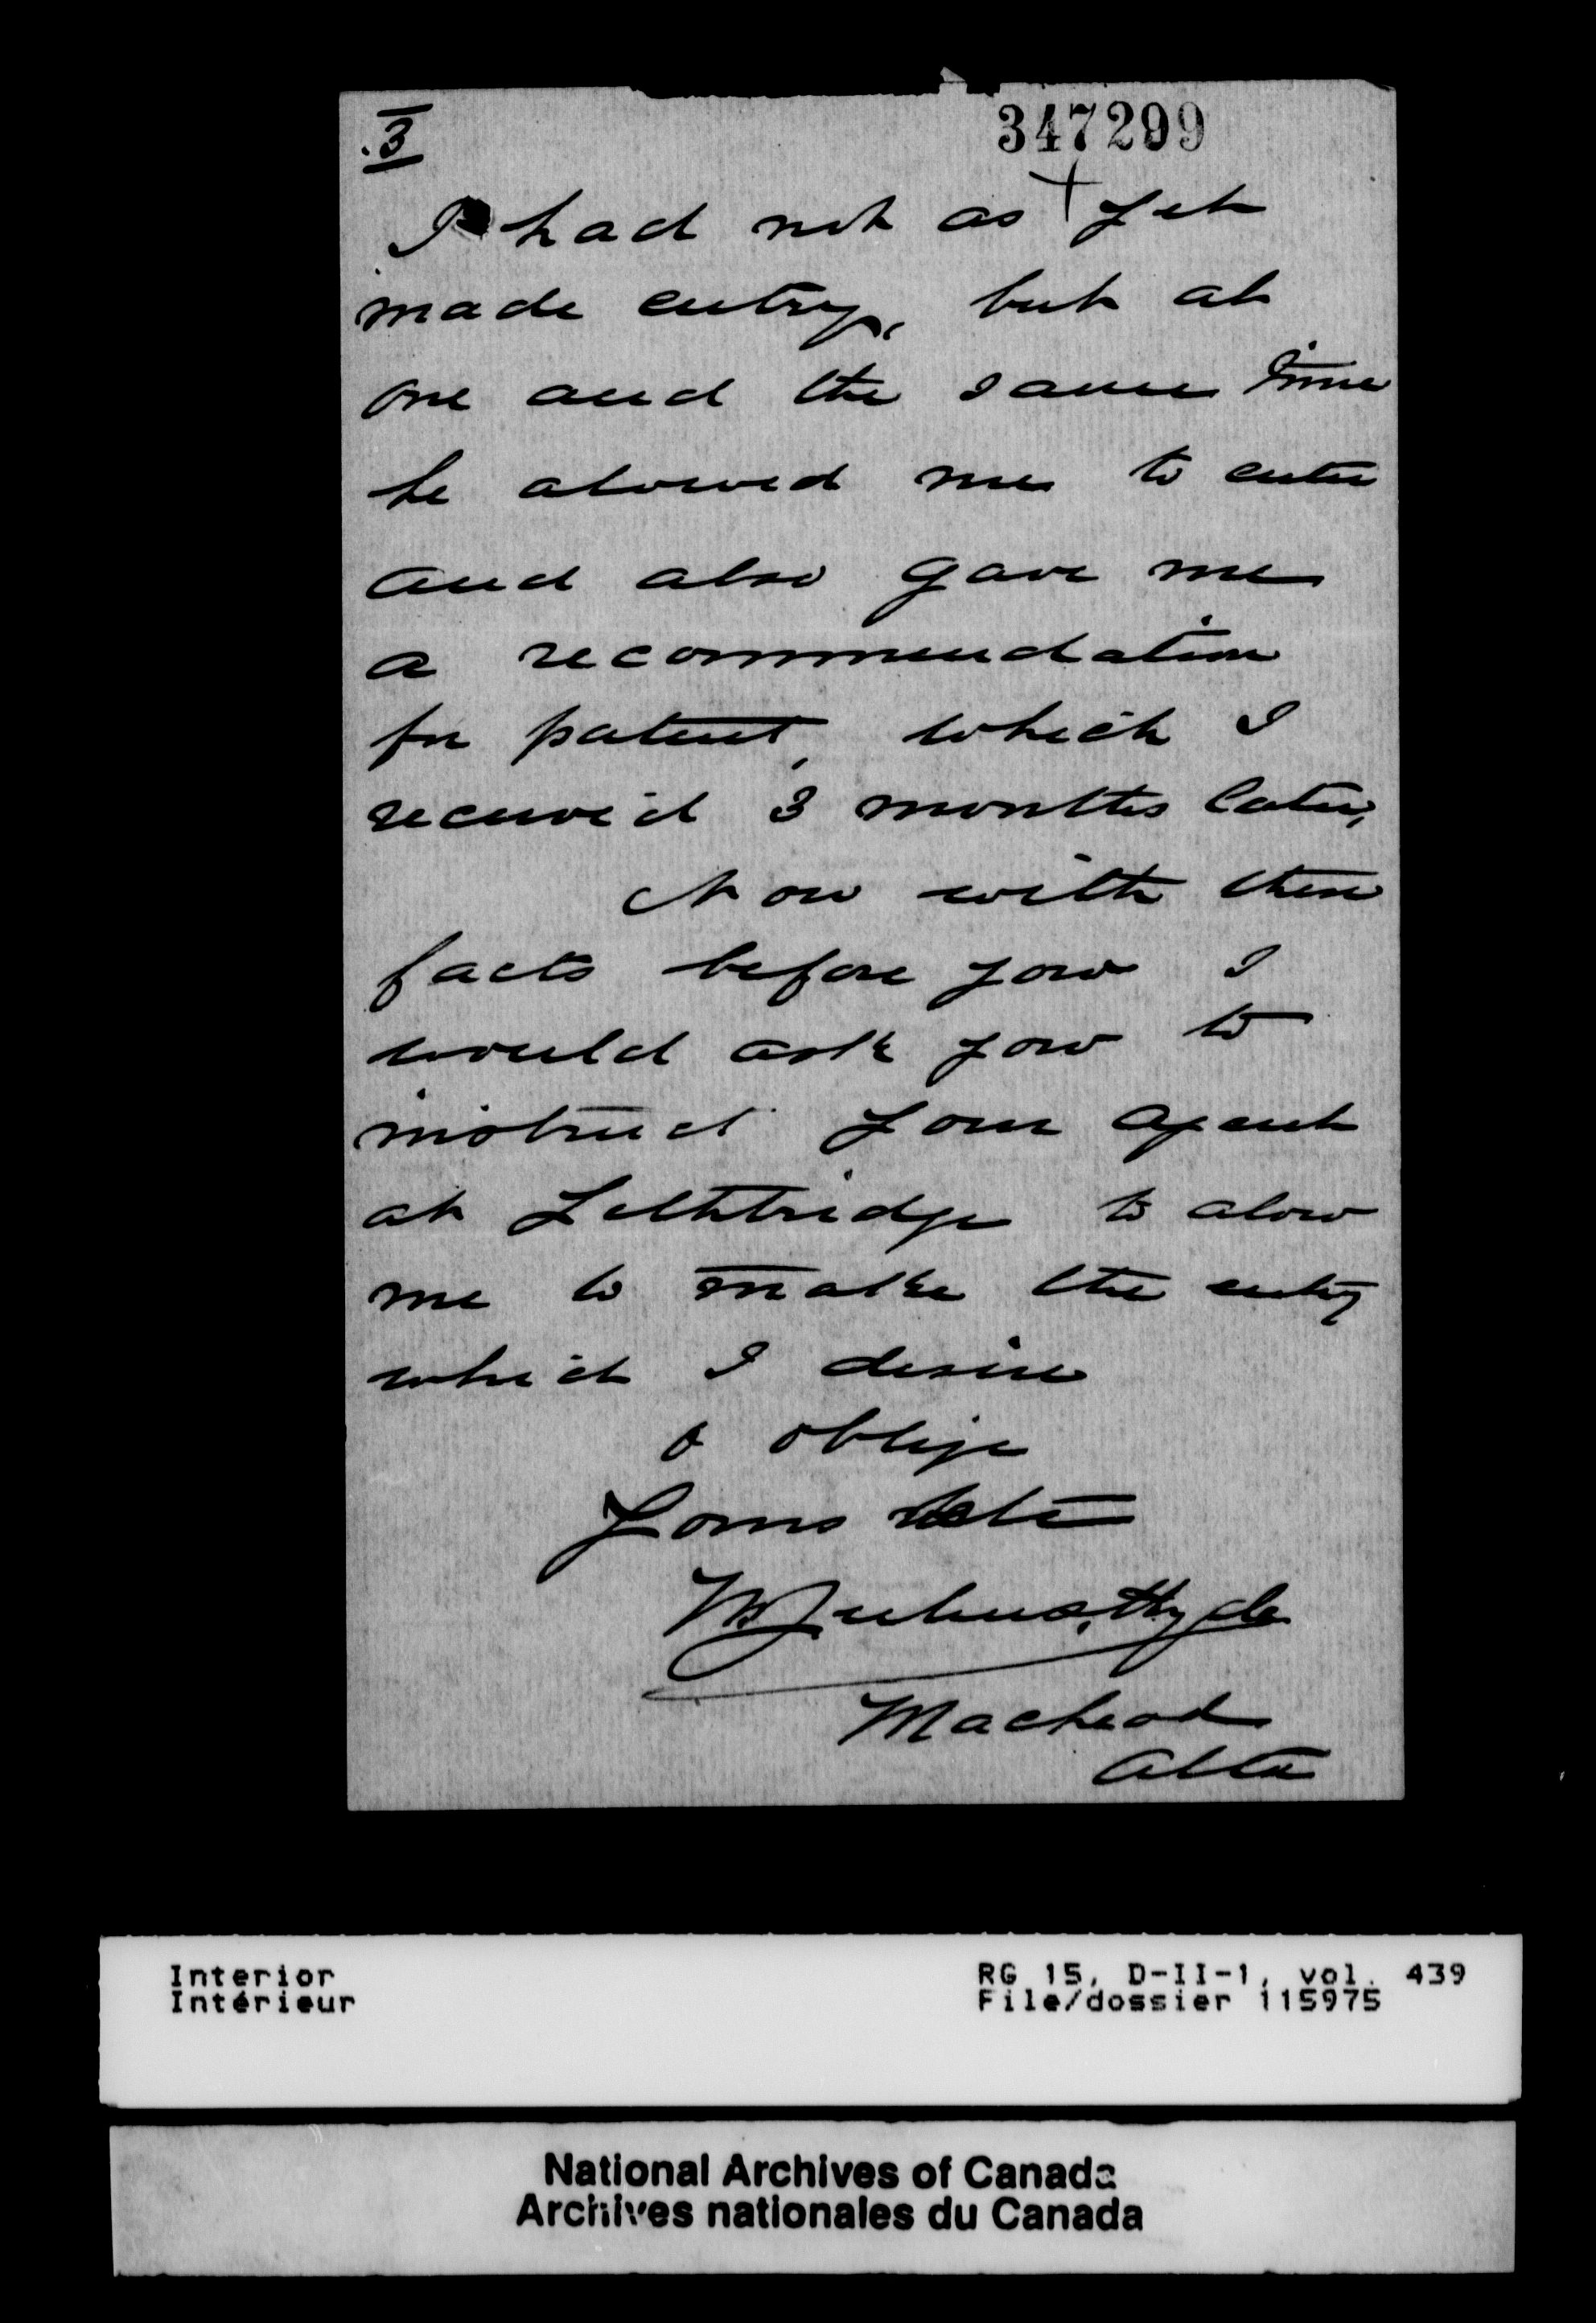 3
347299
I had not as yet
made entry, but at
one and the same time
he alowed me to enter
and also gave me
a recommendation
for patent, which I
receive'd 3 months later,
Now with these
facts before you I
would ask you to
instruct your agent
at Lethbridge to alow
me to make the entry
which I desire
& oblige
Yours etc
Julius, Hyde
Macleod
Alta
Interior
Intérieur
RG 15, D-II-1, vol. 439
File/dossier 115975
National Archives of Canada
Archives nationales du Canada